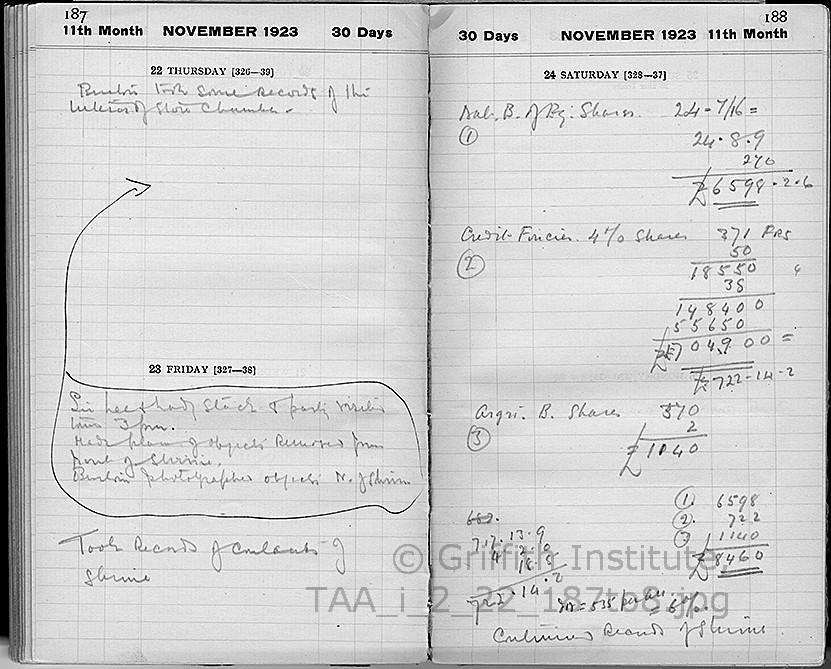 187
11th Month NOVEMBER 1923 30 Days
22 THURSDAY [326—39]
Burton took some records of the
interior of Store Chamber.
23 FRIDAY [327—38]
Sir Lee & Lady Stack & party visited
tomb 3 pm.
Made plan of objects removed from
front of Shrine.
Burton photographed objects N. of Shrine
Took Records of contents of
Shrine
188
30 Days NOVEMBER 1923 11th Month
24 SATURDAY [328—37]
Nat. B. of Eg: Shares. 24-7/16 =
① 24.8.9
270
£6598.2.6
Credit-Foncier. 4% Shares 371 Frs
② 50
18550
38
148400
55650
704900 =
£722-14-2
Agri. B. Shares 370
③ 2
£1140
1. 6598
2. 722
3 1140
£8460
717.13.9
4.2.0
18.5
722.14.2
= 6%.
Continued Records of Shrine.
© Griffith Institute,
TAA_i_2_22_187to8.jpg